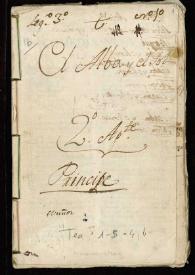 Leg.º 3º t nº 1º
El Alba y el Sol
2º Apte
Principe
Tea 1-3-4 6